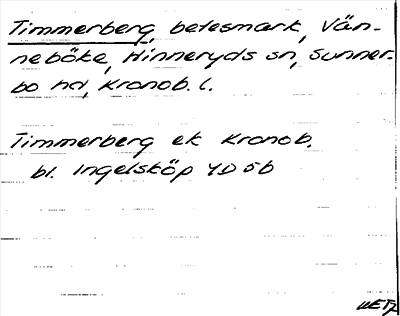 Timmerberg, betesmark, Vän-
neböke, Hinneryds sn, Sunner-
bo hd, Kronob. l.
Timmerberg ek Kronob.
bl. Ingelsköp 4D 5b